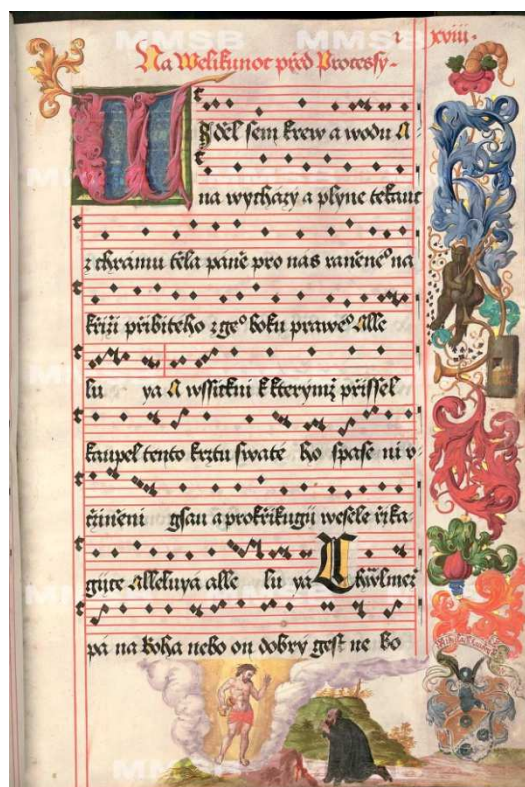 MMSB MMSB
xviii.
Na Welikunoc před Processy.
Uděl sem krew a wodu A
na wycházy a plyne tekauc
z chrámu těla páně pro nás raněneº na
křiži přibiteho z geº boku praweº Alle
lu ya A wssickni k kterýmž přissel
kaupel tento krztu swate ho spase ni v
činěni gsau a prokřikugij wesele řika
gijce Alleluya alle lu ya
pá na Boha nebo on dobrý gest ne bo